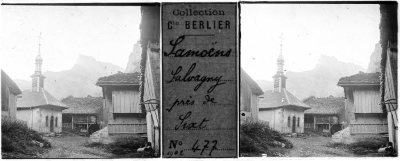 Collection
Cte BERLIER
Samoëns
Salvagny
près de
Sixt
No 477